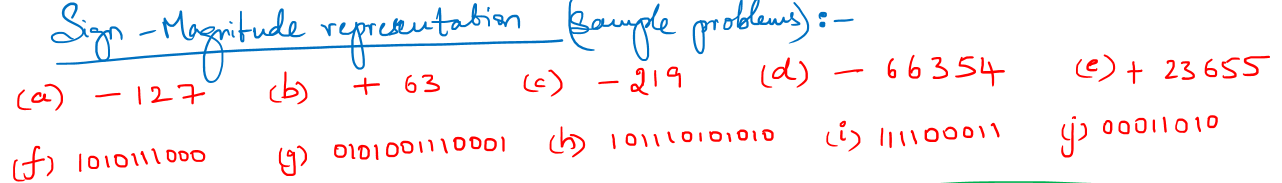 Sign - Magnitude representation (Sample problems) :-
(a) - 127 (b) + 63 (c) - 219 (d) - 66354 (e) + 23655
(f) 1010111000 (g) 0101001110001 (h) 101110101010 (i) 111100011 (j) 00011010